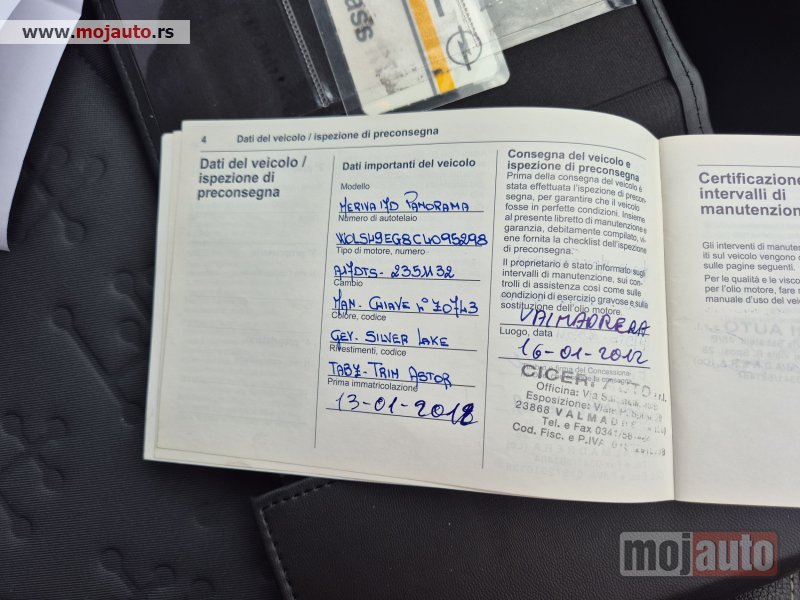 www.mojauto.rs
ass
4 Dati del veicolo / ispezione di preconsegna
Dati del veicolo /
ispezione di
preconsegna
Dati importanti del veicolo
Modello
MERIVA 17D PANORAMA
Numero di autotelaio
W0LSH9EG8C4095298
Tipo di motore, numero
A17DTS - 2351132
Cambio
MAN. CHIAVE n° 70743
Colore, codice
GEV. SILVER LAKE
Rivestimenti, codice
TABZ - TRIM ASTOR
Prima immatricolazione
13-01-2012
Consegna del veicolo e
ispezione di preconsegna
Prima della consegna del veicolo è
stata effettuata l'ispezione di precon-
segna, per garantire che il veicolo
fosse in perfette condizioni. Insieme
al presente libretto di manutenzione e
garanzia, debitamente compilato, vie-
ne fornita la checklist dell'ispezione
di preconsegna.
Il proprietario è stato informato sugli
intervalli di manutenzione, sui con-
trolli di assistenza così come sulle
condizioni di esercizio gravose e sulla
sostituzione dell'olio motore.
VALMADRERA
Luogo, data
16-01-2012
CICERI AUTO s.r.l.
Officina: Via
Esposizione: Viale
23868 VALMADRERA
Tel. e Fax 0341/
Cod. Fisc. e P.IVA
Certificazione
intervalli di
manutenzion
Gli interventi di manuten
iti sul veicolo vengono
sulle pagine seguenti.
Per le qualità e le visco
per l'olio motore, fare
manuale d'uso del veico
mojauto